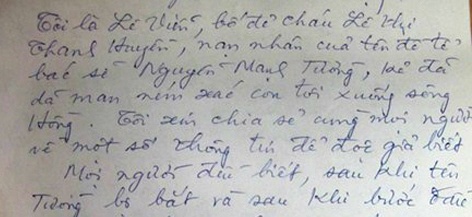 Tôi là Lê Viễn, bố đẻ cháu Lê Thị
Thanh Huyền, nạn nhân của tên đồ tể
bác sĩ Nguyễn Mạnh Tường, kẻ đã
dã man ném xác con tôi xuống sông
Hồng. Tôi xin chia sẻ cùng mọi người
về một số thông tin để độc giả biết
Mọi người đều biết, sau khi tên
Tường bị bắt và sau khi bước